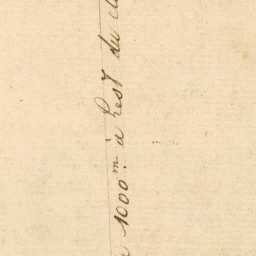 1000.m à l'est du